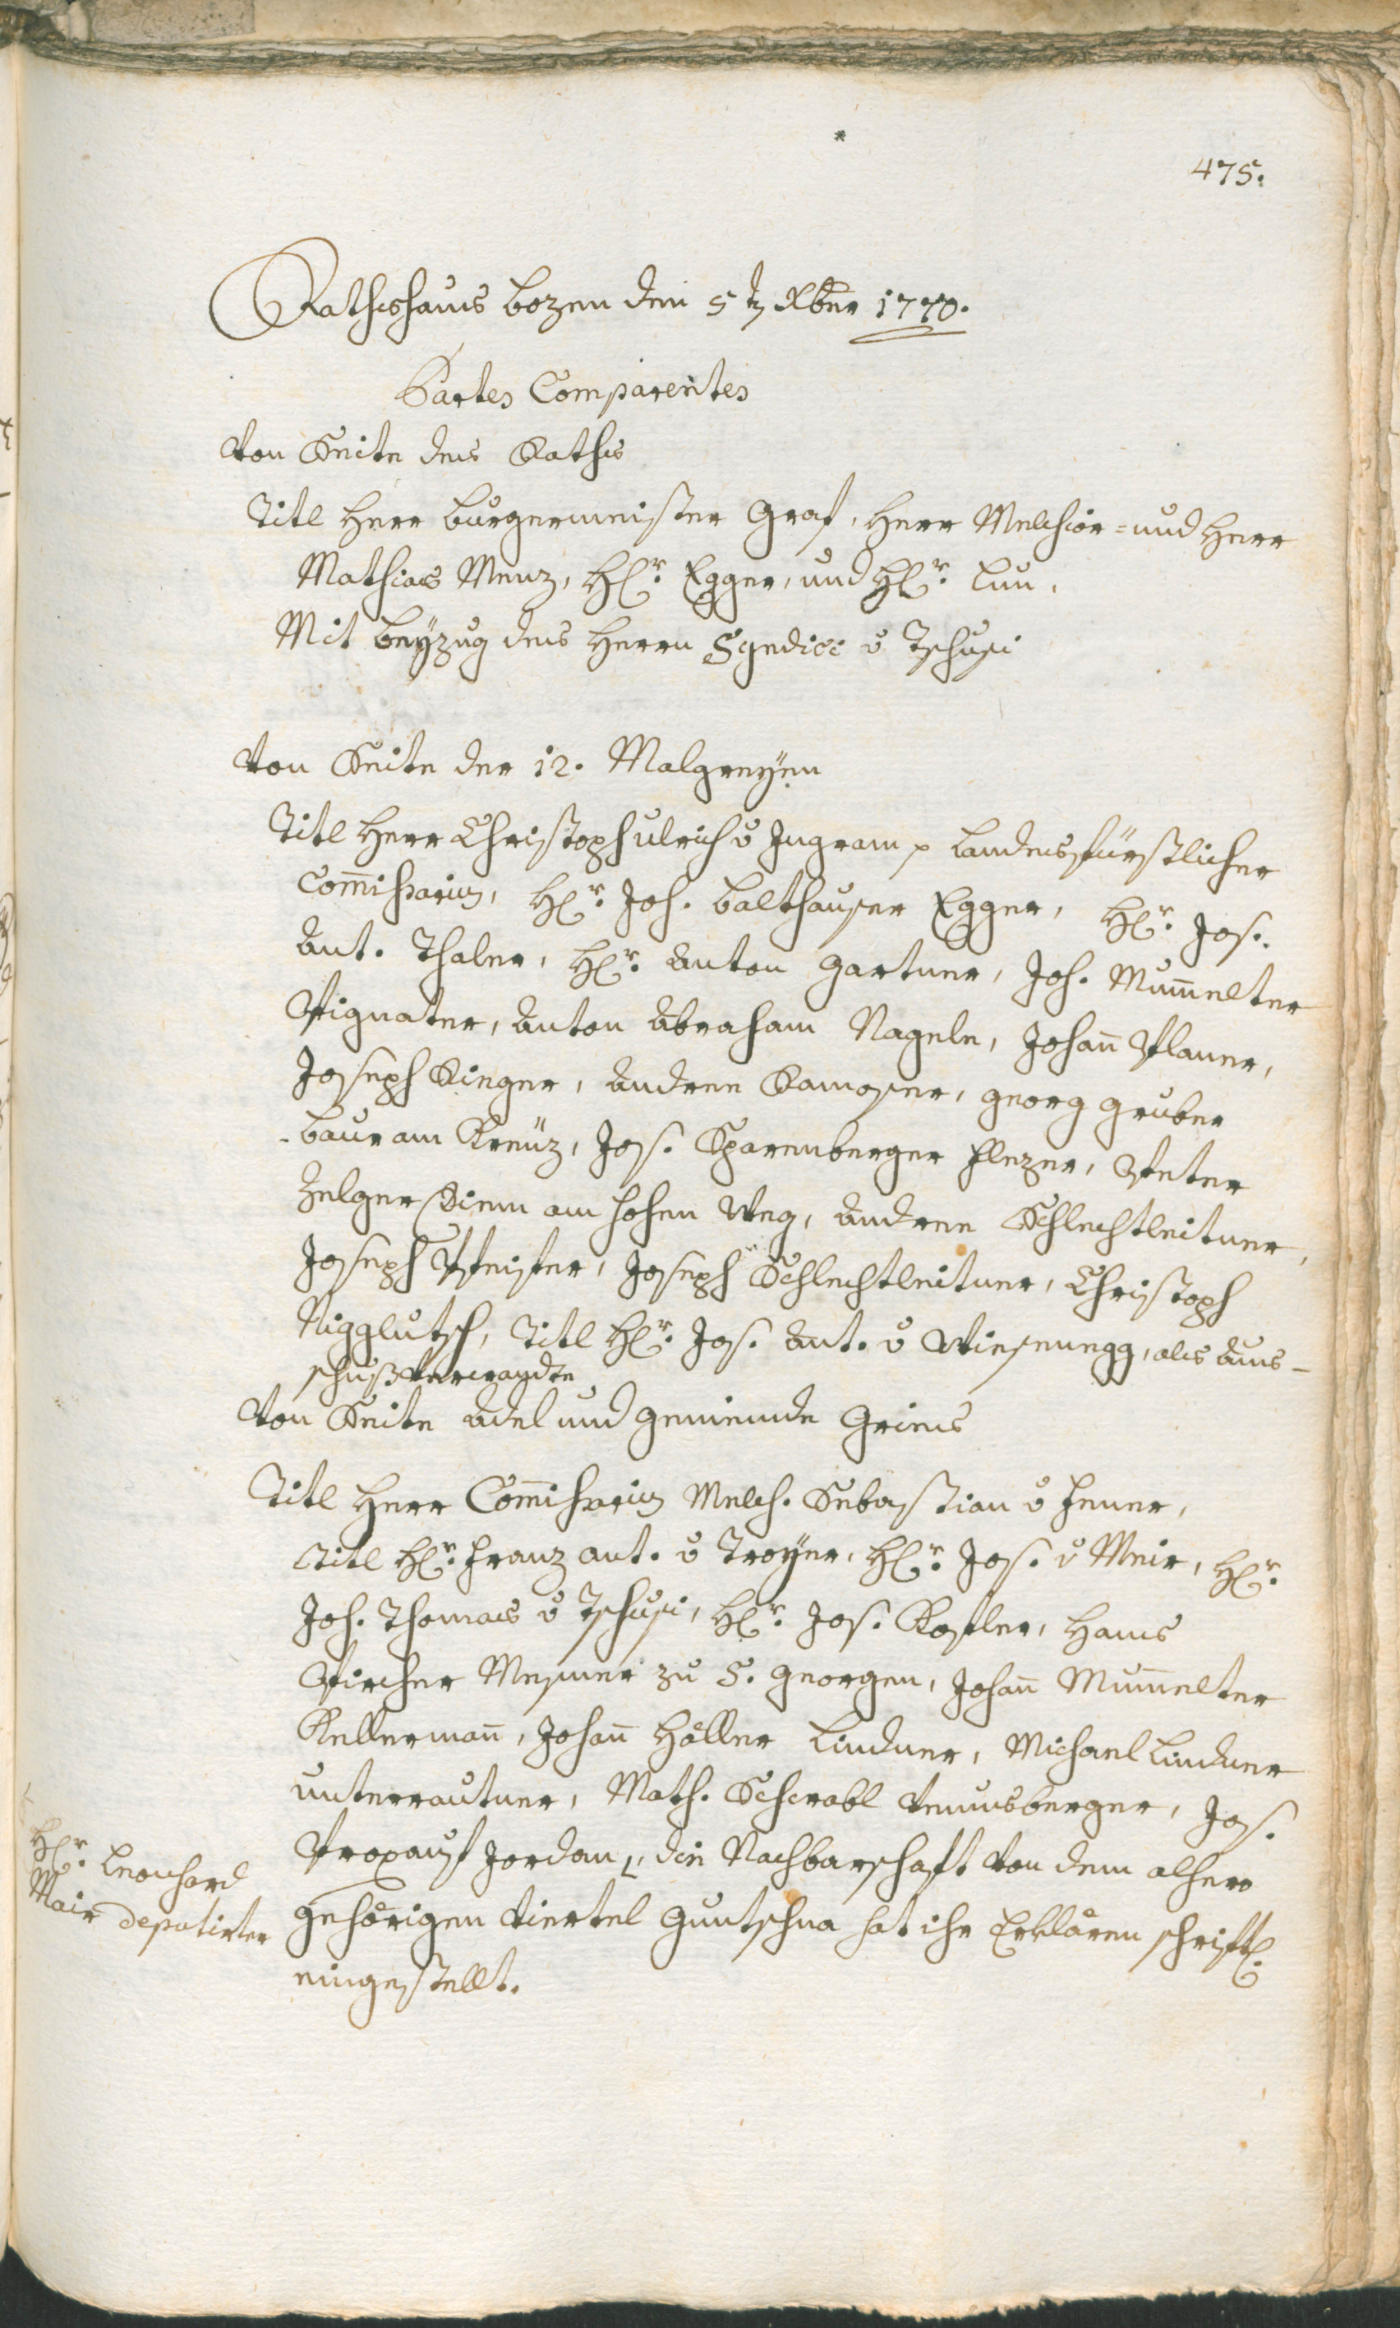 475.
Rathshaus Bozen den 5 tz Xber 1770.
Partes Comparentes
Von Seite des Raths
Titl Herr Burgermeister Graf, Herr Melchior= und Herr
Mathias Menz, H[err] Egger, und H[err] Lun.
Mit beyzug des Herrn Syndici v Tschusi
Von Seite der 12. Malgreyen
Titl Herr Christoph Ulrich v Ingram p Landesfürstlicher
Commissarius, Hr. Joh. Balthauser Egger, Hr. Jos.
Ant. Thaler, Hr. Anton Gartner, Joh. Mum̄elter
Vignater, Anton Abraham Nagele, Johan̄ Planer,
Joseph Singer, Andree Ramoser, Georg Gruber
Baur am Kreuz, Jos. Sparenberger Flezer, Peter
Zelger Riem am hohen Weg, Andree Schlechtleitner,
Joseph Pfeifer, Joseph Schlechtleitner, Christoph
Nigglutsch, Titl Hr. Jos. Ant. v Wiesenegg, als Aus-
schußverwandte
Von Seite Adel und Gemeinde Gries
Titl Herr Com̄issarius Melch. Sebastian v Hener,
Titl Hr. Franz Ant. v Troyer, Hr. Jos. v Meir, Hr.
Joh. Thomas v Tschusi, Hr. Jos. Kofler, Hans
Pircher Mesner zu S. Georgen, Johan̄ Mum̄elter
Kellerman̄, Johan̄ Höller Lindner, Michael Lindner
Unterrautner, Math. Schrabl, Jos.
Propauf Jordan, die Nachbarschaft von dem alhero
Hr. Leonhard
Mair deputirter
gehörigen Viertel Guntschna hat ihr Erklären schriftl.
eingestellt.